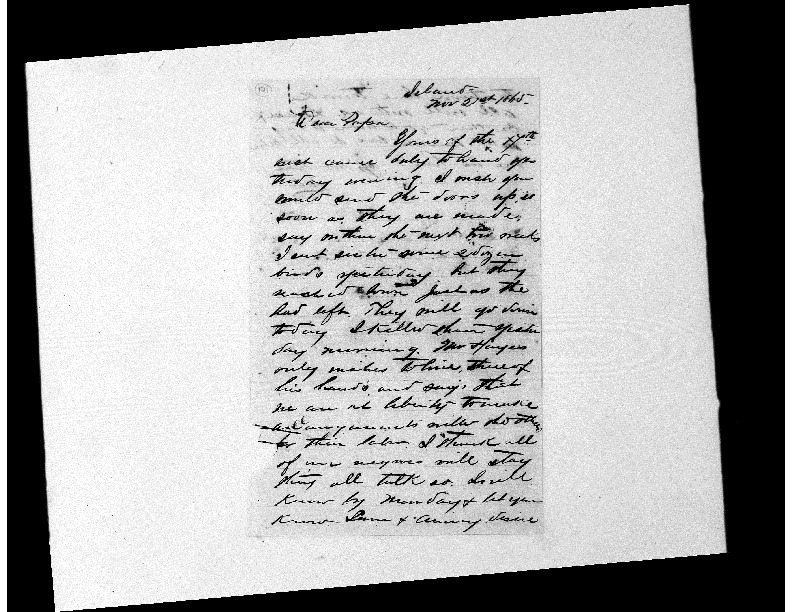 Island
Nov 21st 1865
Dear Papa
Yours of the 17th
inst came duly to hand yes
terday evening I wish you
could send the doors up as
soon as they are made,
say within the next two weeks
I sent some 2 dozen
birds yesterday but they
reached town just as the
had left They will go down
today I killed them yester
day morning. Mr Hayes
only wishes to hire three of
his hands and says that
we are at liberty to make
arrangements with the others
for their labor I think all
of our negroes will stay
they all talk so. I will
know by Monday & let you
know & desire